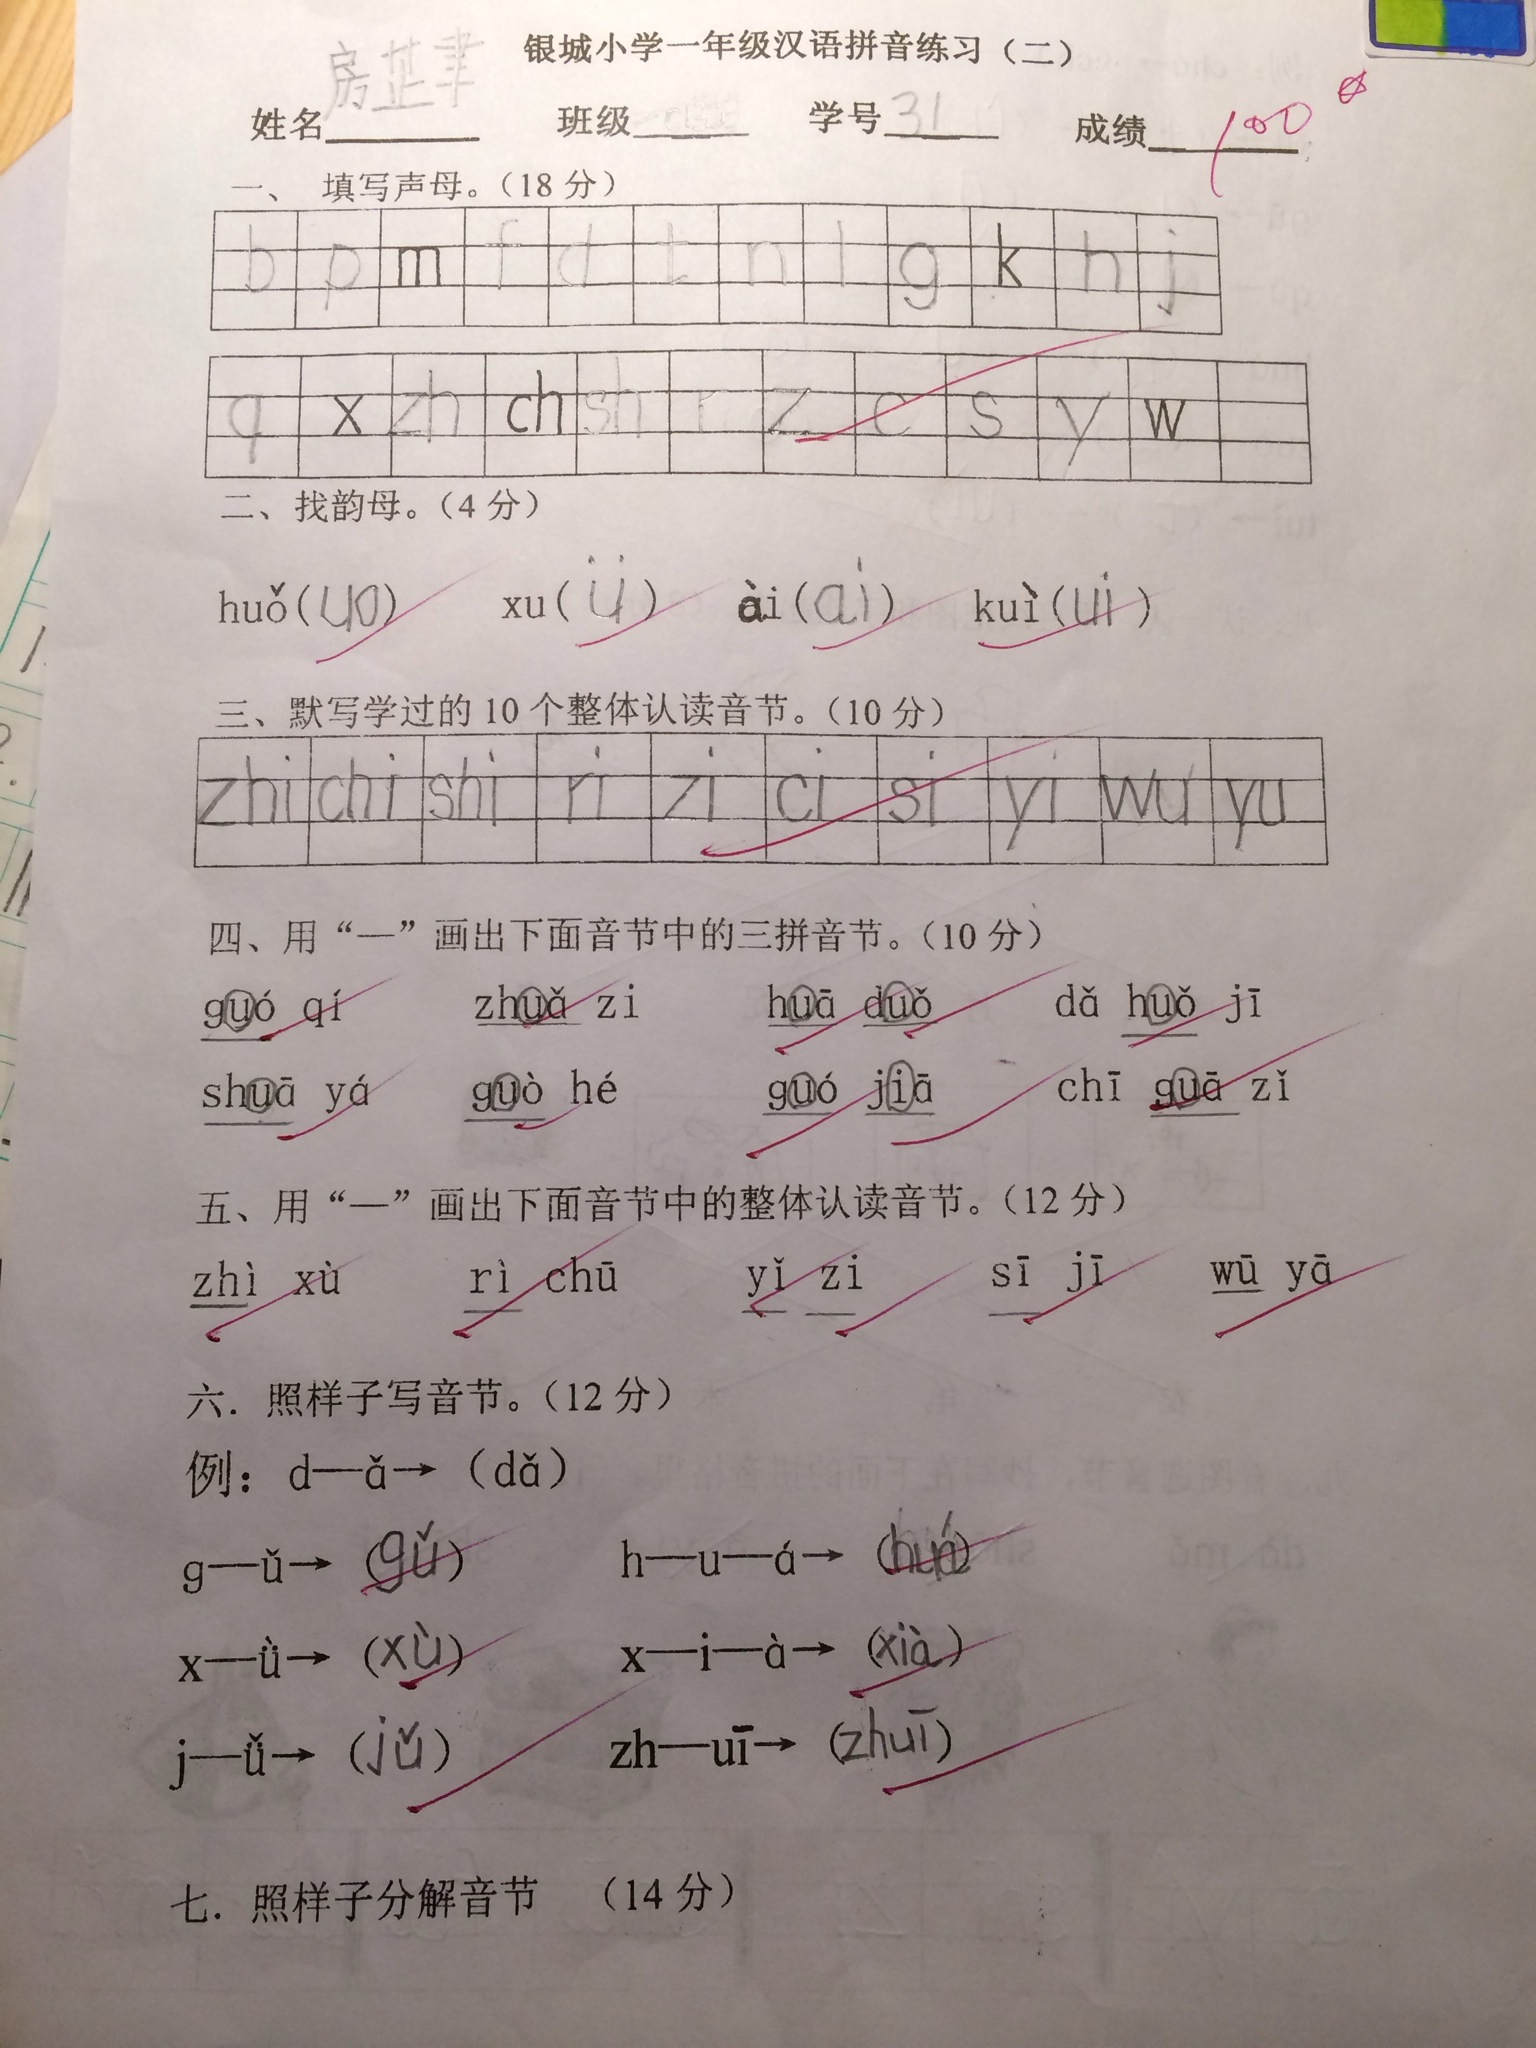 银城小学一年级汉语拼音练习（二）
姓名 房芷聿 班级 学号31 成绩 100
一、 填写声母。（18 分）
b p m f d t n l g k h j
q x zh ch sh r z c s y w
二、找韵母。（4 分）
huǒ(uo) xu(ü) ài(ai) kuì(ui)
三、默写学过的 10 个整体认读音节。（10 分）
zhi chi shi ri zi ci si yi wu yu
四、用“—”画出下面音节中的三拼音节。（10 分）
guó qí zhuǎ zi huā duǒ dǎ huǒ jī
shuā yá guò hé guó jiā chī guā zǐ
五、用“—”画出下面音节中的整体认读音节。（12 分）
zhì xù rì chū yǐ zi sī jī wū yā
六．照样子写音节。（12 分）
例：d—ǎ→（dǎ）
g—ǔ→（gǔ） h—u—á→（huá）
x—ǜ→（xù） x—i—à→（xià）
j—ǚ→（jǔ） zh—uī→（zhuī）
七．照样子分解音节 （14 分）